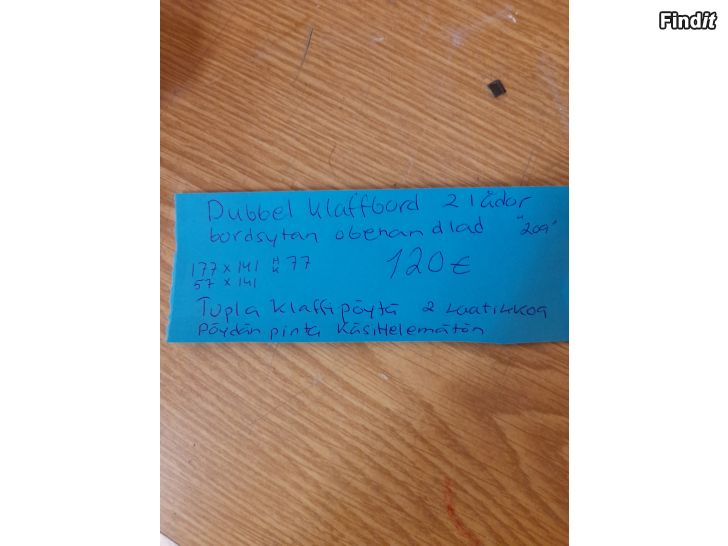 Findit
Dubbel klaffbord 2 lådor
bordsytan obehandlad "209"
177 x 141 H K 77 120€
57 x 141
Tupla klaffipöytä 2 Laatikkoa
Pöydän pinta Käsittelemätön